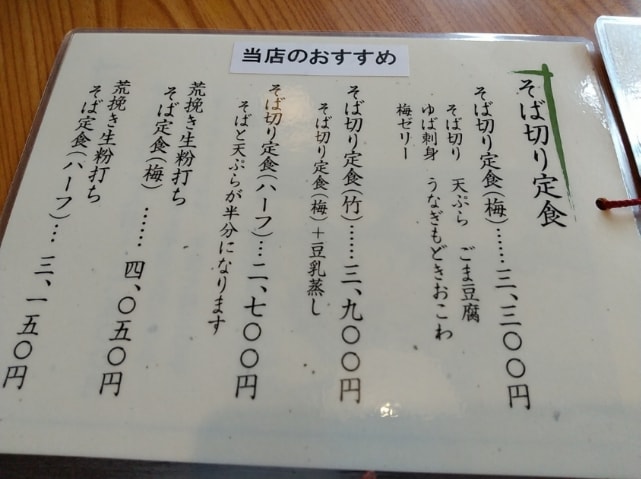 当店のおすすめ
そば切り定食
そば切り定食(梅)……三、三〇〇円
そば切り 天ぷら ごま豆腐
ゆば刺身 うなぎもどきおこわ
梅ゼリー
そば切り定食(竹)……三、九〇〇円
そば切り定食(梅)+豆乳蒸し
そば切り定食(ハーフ)…二、七〇〇円
そばと天ぷらが半分になります
荒挽き生粉打ち
そば定食(梅)……四、〇五〇円
荒挽き生粉打ち
そば定食(ハーフ)…三、一五〇円